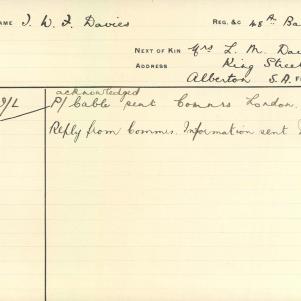 NAME J. W. F. Davies REG. &C 48th Ba
NEXT OF KIN Mrs L. M. Da
ADDRESS King Street
Alberton S.A.
acknowledged
P/ Cable sent Comnrs London.
Reply from Commrs. Information sent